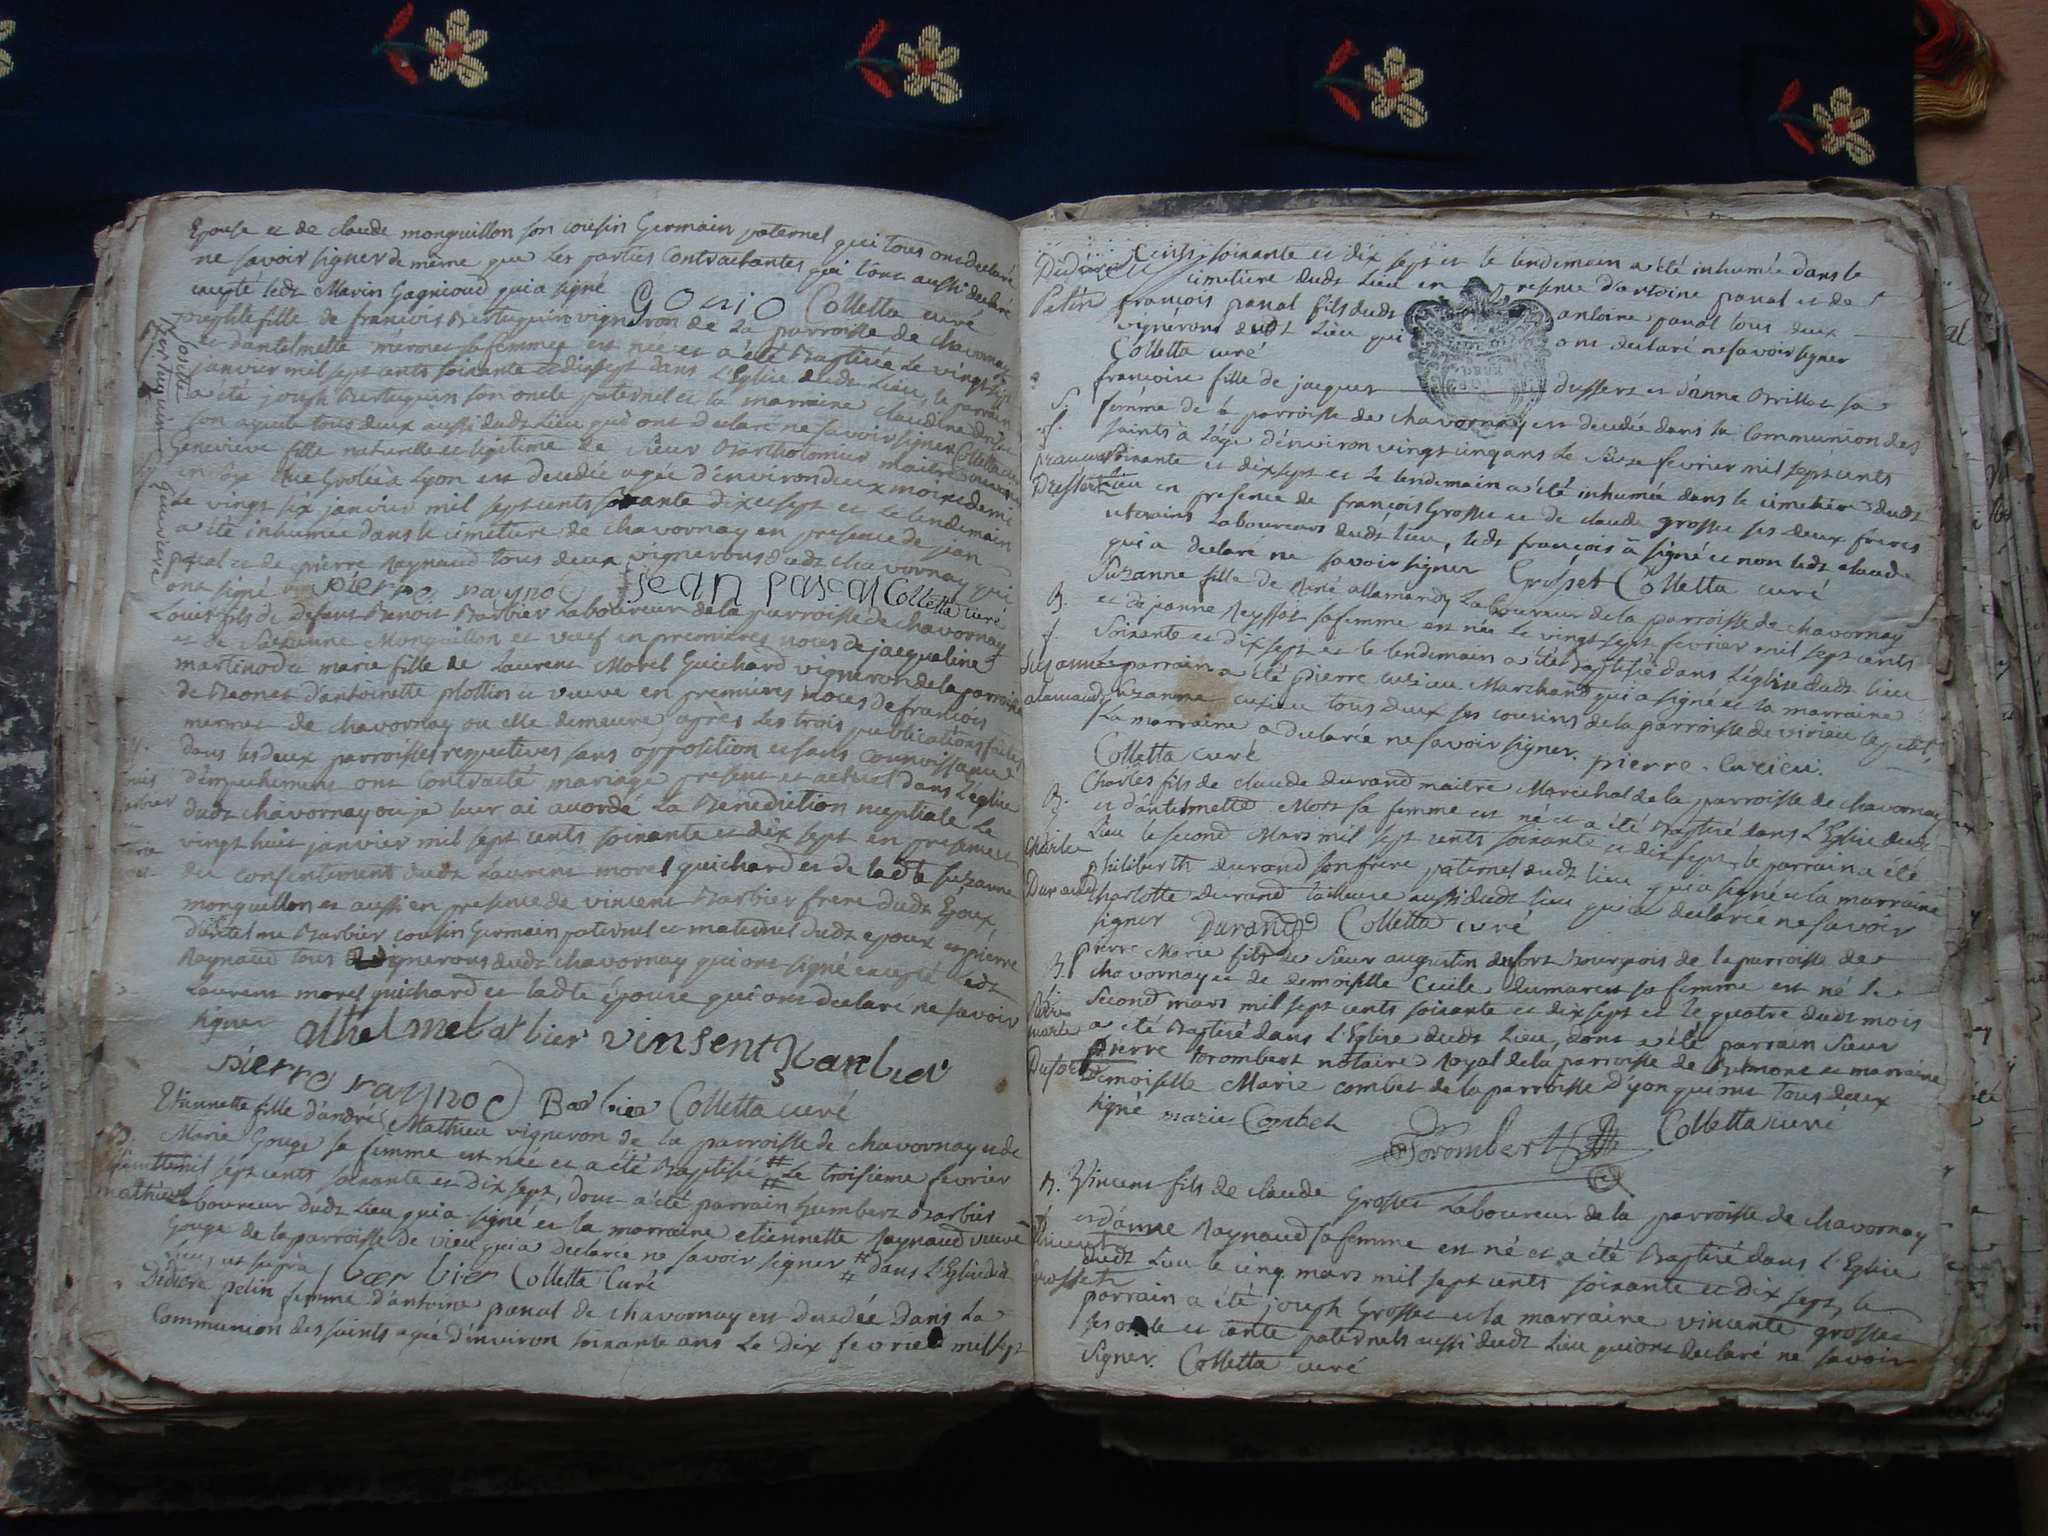 Epouse et de claude monguillon son cousin Germain paternel qui tous ont declaré
ne savoir signer de même que les parties Contractantes qui l'ont aussi declaré
excepté ledt Marin Gagnioud qui a signé Collletta curé
fille de francois Bertuguin vigneron de la parroisse de chavornay
et d'antelmette mermet sa femme est née et a été Baptisée le vingt sept
janvier mil sept cents soixante et dix sept dans L'Eglise dudt Lieu, le parrain
a été joseph Bertuguin son oncle paternel et la marraine claudine
son ayeule tous deux aussi dudt Lieu qui ont declaré ne savoir signer Colletta curé
Josette
Bertuguin
Genevieve fille naturelle et legitime de sieur Bartholomier maitre
rue Grolée a Lyon est decedée agée d'environ deux mois et demi
Le vingt six janvier mil sept cents soixante dix et sept et le lendemain
a été inhumée dans le cimetiere de chavornay en presence de jean
pascal et de pierre Raynaud tous deux vignerons dudt chavornay qui
ont signé pierre raynod jean pascal Colletta curé
Genevieve
Louis fils de defunt Benoit Barbier Laboureur de la parroisse de chavornay
et de Suzanne Monguillon et veuf en premieres noces de jacqueline
martinod et marie fille de Laurent Morel Guichard vigneron de la parroisse
de Beon et d'antoinette plottin et veuve en premieres noces de francois
mermet de chavornay ou elle demeure, après les trois publications faites
dans les deux parroisses respectives sans opposition et sans connoissance
d'empechement ont Contracté mariage present et actuel dans L'église
dudt chavornay ou je leur ai accordé La Bénédiction nuptiale Le
vingt huit janvier mil sept cents soixante et dix sept en presence et
du consentement dudt Laurent morel guichard et de ladte suzanne
monguillon et aussi en presence de vincent Barbier frere dudt Epoux,
d'antelme Barbier cousin Germain paternel et maternel dudt epoux et pierre
Raynaud tous vignerons dudt chavornay qui ont signé excepté ledt
Laurent morel guichard et ladte épouse qui ont declaré ne savoir
signer athelme barbier vinsent barbier
pierre raynod Barbier Colletta curé
Etiennette fille d'andré Mathieu vigneron de la parroisse de chavornay et de
B. Marie Gouge sa femme est née et a été Baptisée # Le troisieme fevrier
mil sept cents soixante et dix sept, dont a été parrain humbert Barbier
mathieu
Laboureur dudt Lieu qui a signé et la marraine etiennette Raynaud veuve
Gouge de la parroisse de vieu qui a declarée ne savoir signer # dans L'Eglise dudt
Lieu, ut suprà barbier Colletta Curé
Didiere petin femme d'antoine panal de chavornay est decedée Dans La
Communion des saints agée d'environ soixante ans Le Dix fevrier mil sept
Didiere
Petin
cents soixante et dix sept et le lendemain a été inhumée dans le
cimetiere dudt Lieu en presence d'antoine panal et de
francois panal fils dudt antoine panal tous deux
vignerons dudt Lieu qui ont declaré ne savoir signer
Colletta curé
S.
f.
Dussert
francoise fille de jacques dussert et d'anne Orrillat sa
femme de la parroisse de chavornay est decedée dans la Communion des
saints à l'age d'environ vingt cinq ans le seize fevrier mil sept cents
soixante et dix sept et le lendemain a été inhumée dans le cimetiere dudt
Lieu en presence de francois Grosset et de claude grosset ses deux freres
uterains Laboureurs dudt Lieu, ledt francois a signé et non ledt claude
qui a declaré ne savoir signer Grosset Colletta curé
B.
f.
Susanne
alamandy
Suzanne fille de René allamandy Laboureur de la parroisse de chavornay
et de jeanne Reyssat sa femme est née le vingt sept fevrier mil sept cents
soixante et dix sept et le lendemain a été baptisée dans L'église dudt lieu
Le parrain a été pierre cuzieu Marchand qui a signé et la marraine
Suzanne cuzieu tous deux ses cousins de la parroisse de virieu le petit,
La marraine a declarée ne savoir signer. pierre. Cuzieu.
Colletta curé
B.
Charle
Durand
Charles fils de claude durand maitre Marechal de la parroisse de chavornay
et d'antelmette Mott sa femme est né et a été Baptisé dans L'Eglise dudt
Lieu le second Mars mil sept cents soixante et dix sept, le parrain a été
philiberth durand son frere paternel dudt lieu qui a signé et la marraine
charlotte durand tailleuse aussi dudt lieu qui a declarée ne savoir
signer Durand Colletta curé
B.
Pierre
marie
Dufort
pierre Marie fils de sieur augustin dufort Bourgeois de la parroisse de
chavornay et de demoiselle Cecile dumarest sa femme est né le
second mars mil sept cents soixante et dix sept et le quatre dudt mois
a été Baptisé dans L'Eglise dudt Lieu, dont a été parrain sieur
pierre Brombert notaire Royal de la parroisse de et marraine
demoiselle Marie combet de la parroisse d'yon qui ont tous deux
signé marie Combet Brombert Colletta curé
B.
Vincent
Grosset
Vincent fils de claude Grosset Laboureur de la parroisse de chavornay
et d'anne Raynaud sa femme est né et a été Baptisé dans L'Eglise
dudt Lieu le cinq mars mil sept cents soixante et dix sept, le
parrain a été joseph Grosset et la marraine vincente grosset
ses oncle et tante paternels aussi dudt Lieu qui ont declaré ne savoir
signer. Colletta curé